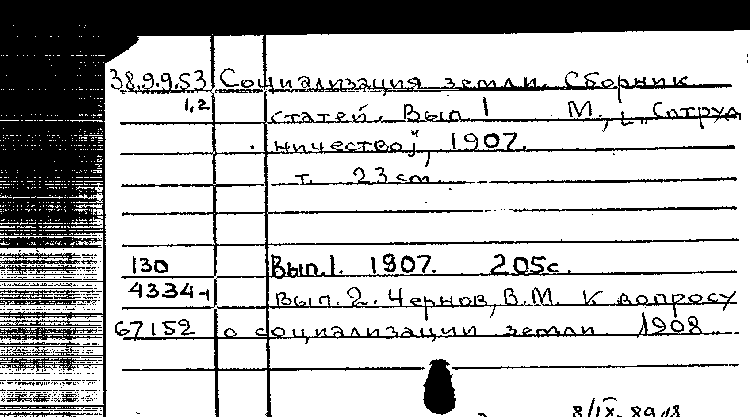 38.9.9.53 Социализация земли. Сборник
1,2 статей. Вып 1 М., ["Сотруд
ничество"], 1907.
т. 23 cm.
130 Вып.1. 1907. 205с.
4334-1 Вып. 2. Чернов, В.М. К вопросу
67152 о социализации земли 1908
8/IX-